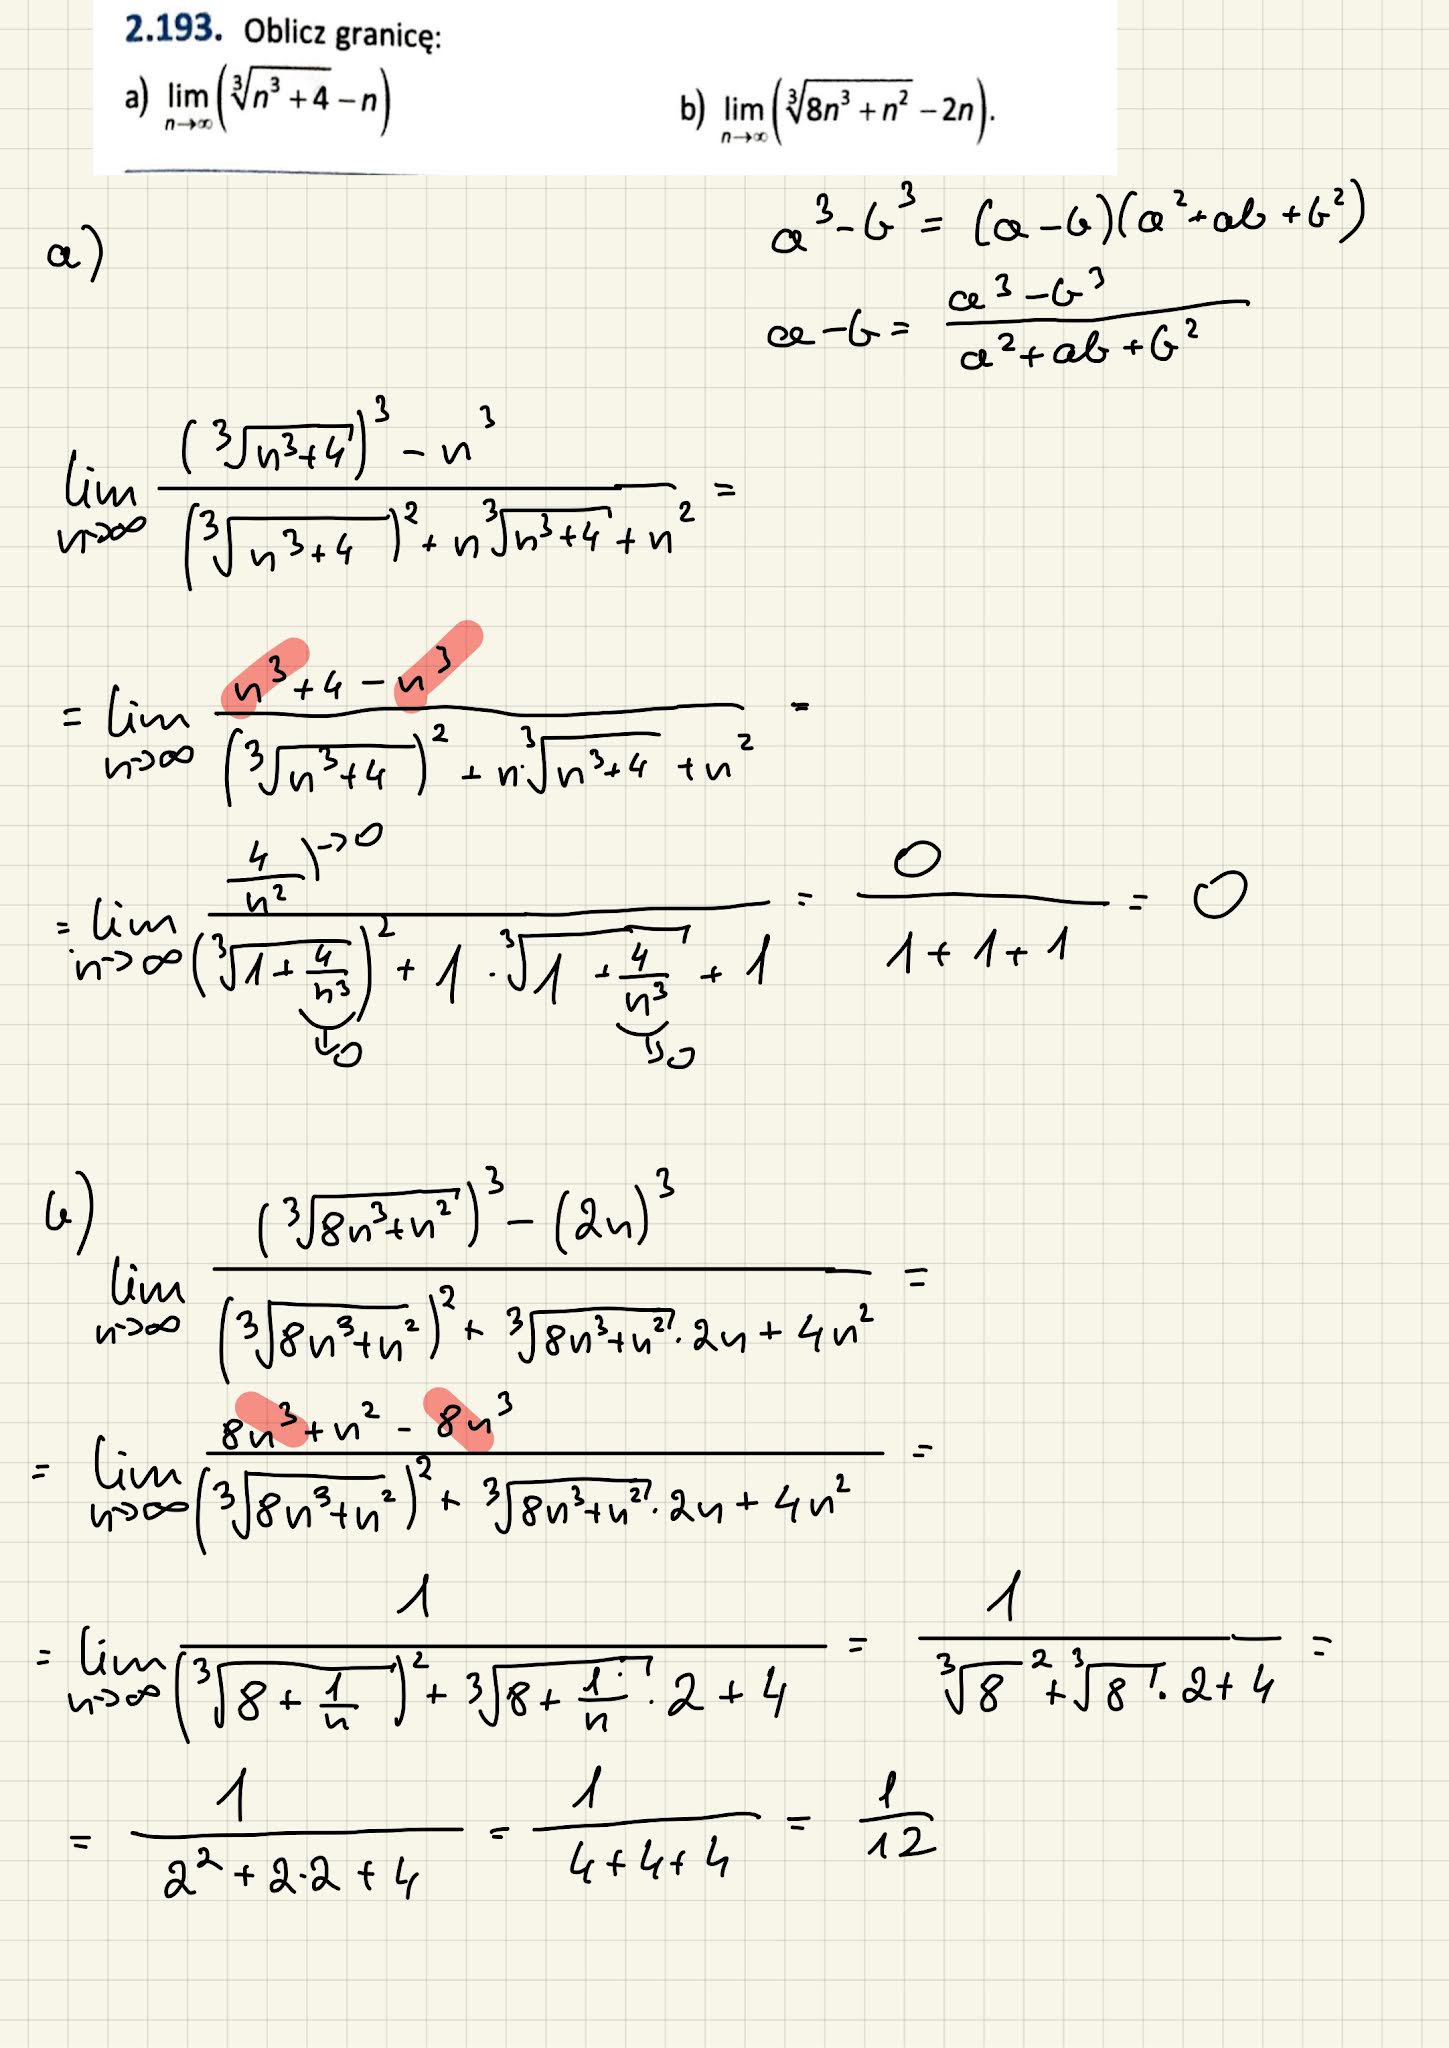 2.193. Oblicz granicę:
a) lim n→∞ (∛(n³ + 4) – n)
b) lim n→∞ (∛(8n³ + n²) – 2n).
a³ - b³ = (a - b)(a² + ab + b²)
a)
a - b = (a³ - b³)/(a² + ab + b²)
lim n→∞ ((∛(n³+4))³ - n³)/((∛(n³+4))² + n∛(n³+4) + n²) =
= lim n→∞ (n³+4 - n³)/((∛(n³+4))² + n·∛(n³+4) + n²) =
= lim n→∞ (4/n²)→0/((∛(1+4/n³))² + 1·∛(1+4/n³) + 1) = 0/(1+1+1) = 0
→0 →0
b)
lim n→∞ ((∛(8n³+n²))³ - (2n)³)/((∛(8n³+n²))² + ∛(8n³+n²)·2n + 4n²) =
= lim n→∞ (8n³+n² - 8n³)/((∛(8n³+n²))² + ∛(8n³+n²)·2n + 4n²) =
= lim n→∞ 1/((∛(8+1/n))² + ∛(8+1/n)·2 + 4) = 1/(∛8² + ∛8·2 + 4) =
= 1/(2² + 2·2 + 4) = 1/(4+4+4) = 1/12